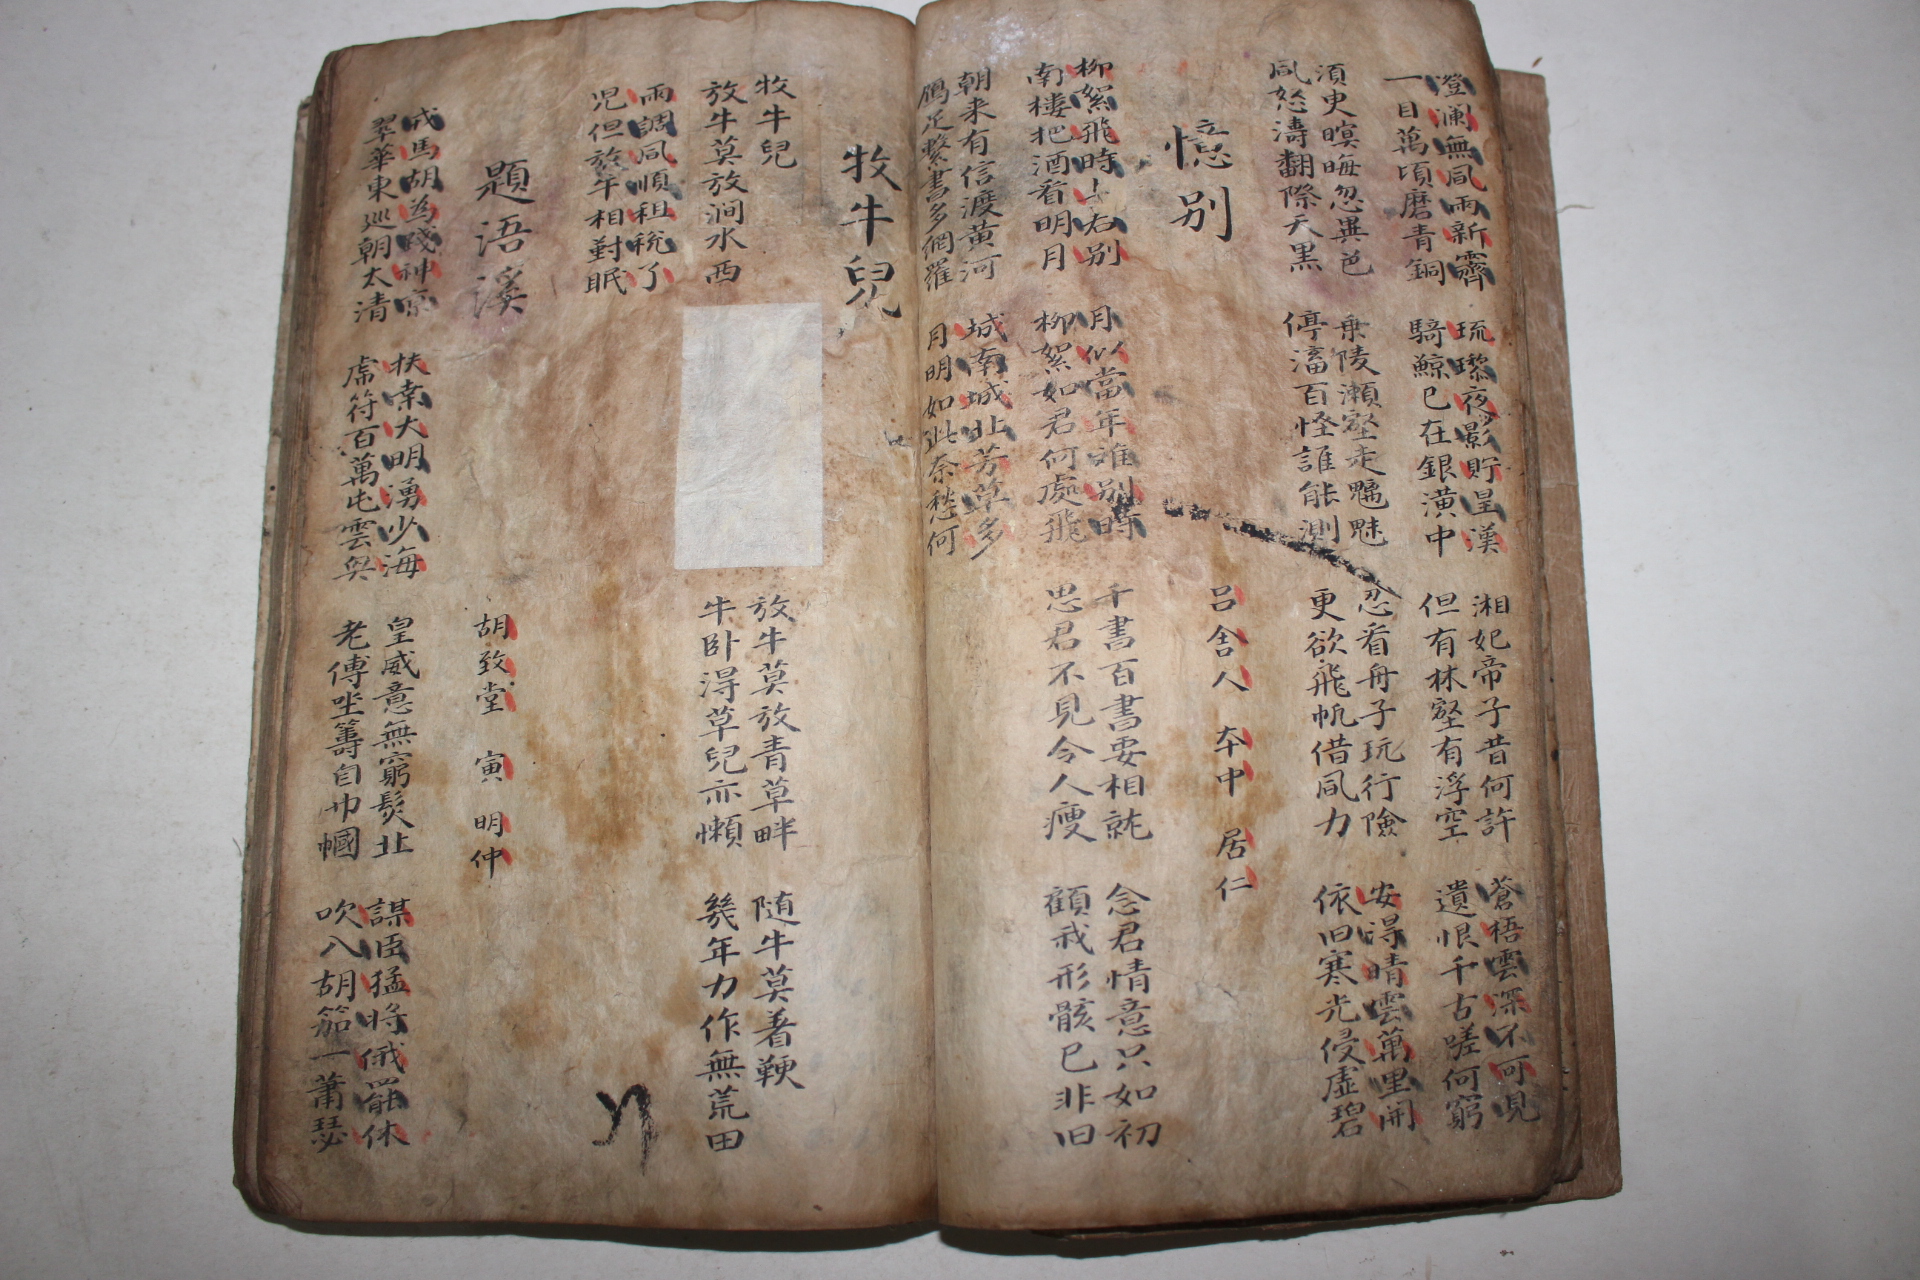 澄瀾無風雨新霽
一目萬頃磨青銅
琉璃夜影貯星漢
騎鯨已在銀潢中
湘妃帝子昔何許
但有林壑有浮空
蒼梧雲深不可見
遺恨千古嗟何窮
須臾暝晦忽異色
風怒濤翻際天黑
乗陵瀬壑走魑魅
停滀百怪誰能測
忍看舟子玩行險
更欲飛帆借風力
安得晴雲萬里開
依旧寒光侵虚碧
憶別
呂舍人 夲中 居仁
柳絮飛時与右別
南樓把酒看明月
月似當年離別時
柳絮如君何處飛
千書百書要相就
思君不見令人瘦
念君情意只如初
顧我形骸已非旧
朝来有信渡黄河
鴈足繫書多網羅
城南城北芳草多
月明如此奈愁何
牧牛兒
牧牛兒
放牛莫放澗水西
放牛莫放青草畔
牛卧得草兒亦懶
随牛莫著鞭
幾年力作無荒田
雨調風順租税了
児但放牛相對眠
題浯溪
胡致堂 寅 明仲
戎馬胡為踐神京
翠華東巡朝太清
扶桒大明湧少海
虎符百萬屯雲兵
皇威意無窮髮北
老傅坐籌自巾幗
謀臣猛将俄罷休
吹入胡笳一萧瑟